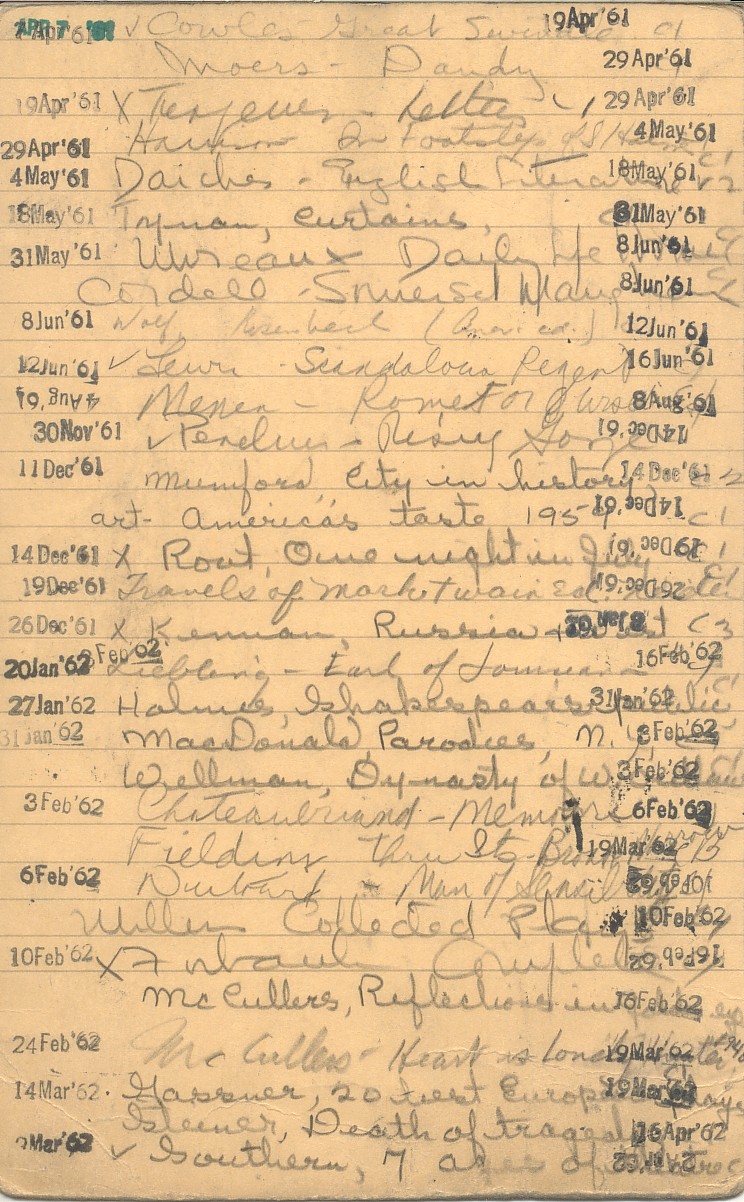 APR 7 '61 ✓ Cowles Great Swindle c1 19 Apr '61
Moers - Dandy 29 Apr '61
19 Apr '61 X Turgenev - Letters 29 Apr '61
29 Apr '61 Harrison In Footsteps of S Holmes c1 4 May '61
4 May '61 Daiches - English Literature v2 18 May '61
18 May '61 Tynan, Curtains, c 31 May '61
31 May '61 Mireaux Daily Life c 8 Jun '61
Cordell - Somerset Maugham 8 Jun '61
8 Jun '61 Wolf, Rosenbach (Amer. ed.) 12 Jun '61
12 Jun '61 ✓ Lewis - Scandalous Regent 16 Jun '61
4 Aug '61 Menen - Rome 8 Aug '61
30 Nov '61 ✓ Rising Gorge 14 Dec '61
11 Dec '61 Mumford City in history c2 14 Dec '61
art - America's taste 1959 c1 14 Dec '61
14 Dec '61 X Rout, One night in July c1 19 Dec '61
19 Dec '61 Travels of Mark Twain Ed. 26 Dec '61
26 Dec '61 X Kennan, Russia + West c3
20 Jan '62 3 Feb '62 Liebling - Earl of Louisiana 16 Feb '62
27 Jan '62 Holmes, Shakespeare's Public 31 Jan '62
31 Jan '62 MacDonald, Parodies, 3 Feb '62
Wellman, Dynasty of 3 Feb '62
3 Feb '62 Chateaubriand - Memoirs 6 Feb '62
Fielding thru Sts. 19 Mar '62
6 Feb '62 - Man of 10 Feb '62
Miller Collected Plays 10 Feb '62
10 Feb '62 X Couplets 16 Feb '62
McCullers, Reflections in 16 Feb '62
24 Feb '62 McCullers - Heart is Lonely Hunter 1940 19 Mar '62
14 Mar '62 Gassner, 20 best European Plays 19 Mar '62
Steiner, Death of tragedy 16 Apr '62
Mar '62 ✓ Southern, 7 ages of theatre